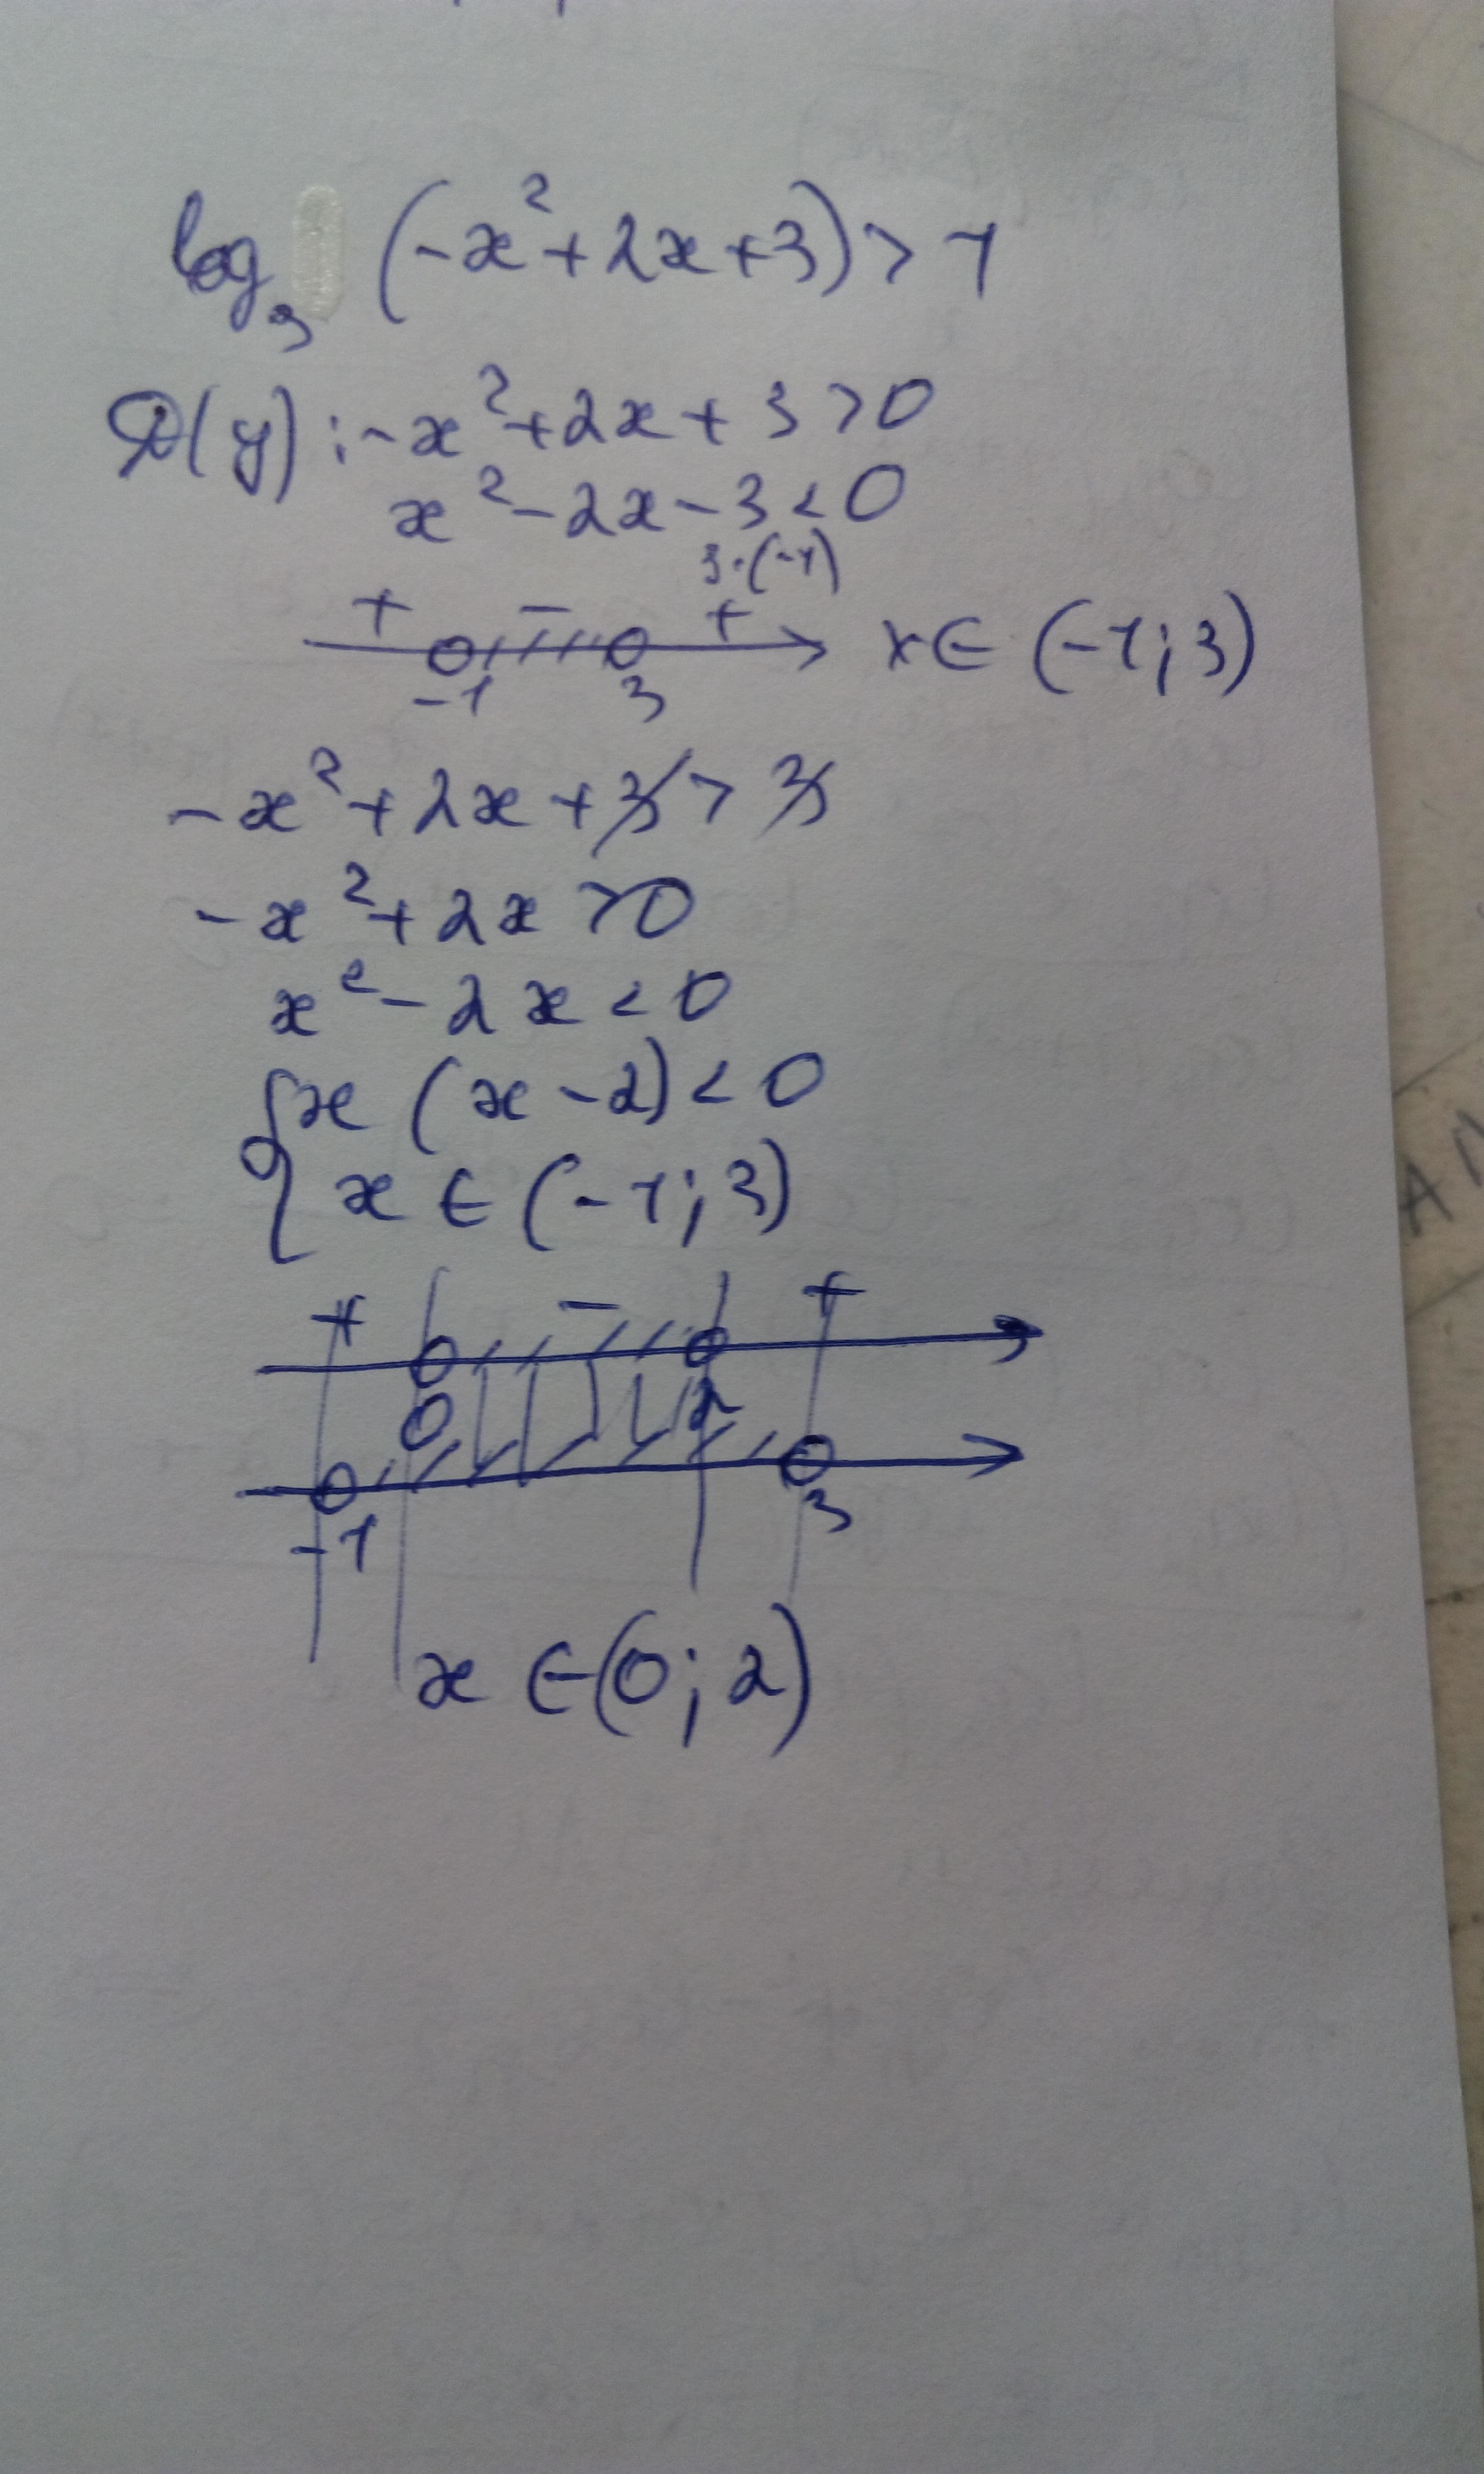 log₃ (-x²+2x+3)>1
D(y): -x²+2x+3>0
x²-2x-3<0
3·(-1)
+ - +
-1 3 x∈(-1;3)
-x²+2x+3>3
-x²+2x>0
x²-2x<0
{x(x-2)<0
x∈(-1;3)
+ - +
0 2
-1 3
x∈(0;2)